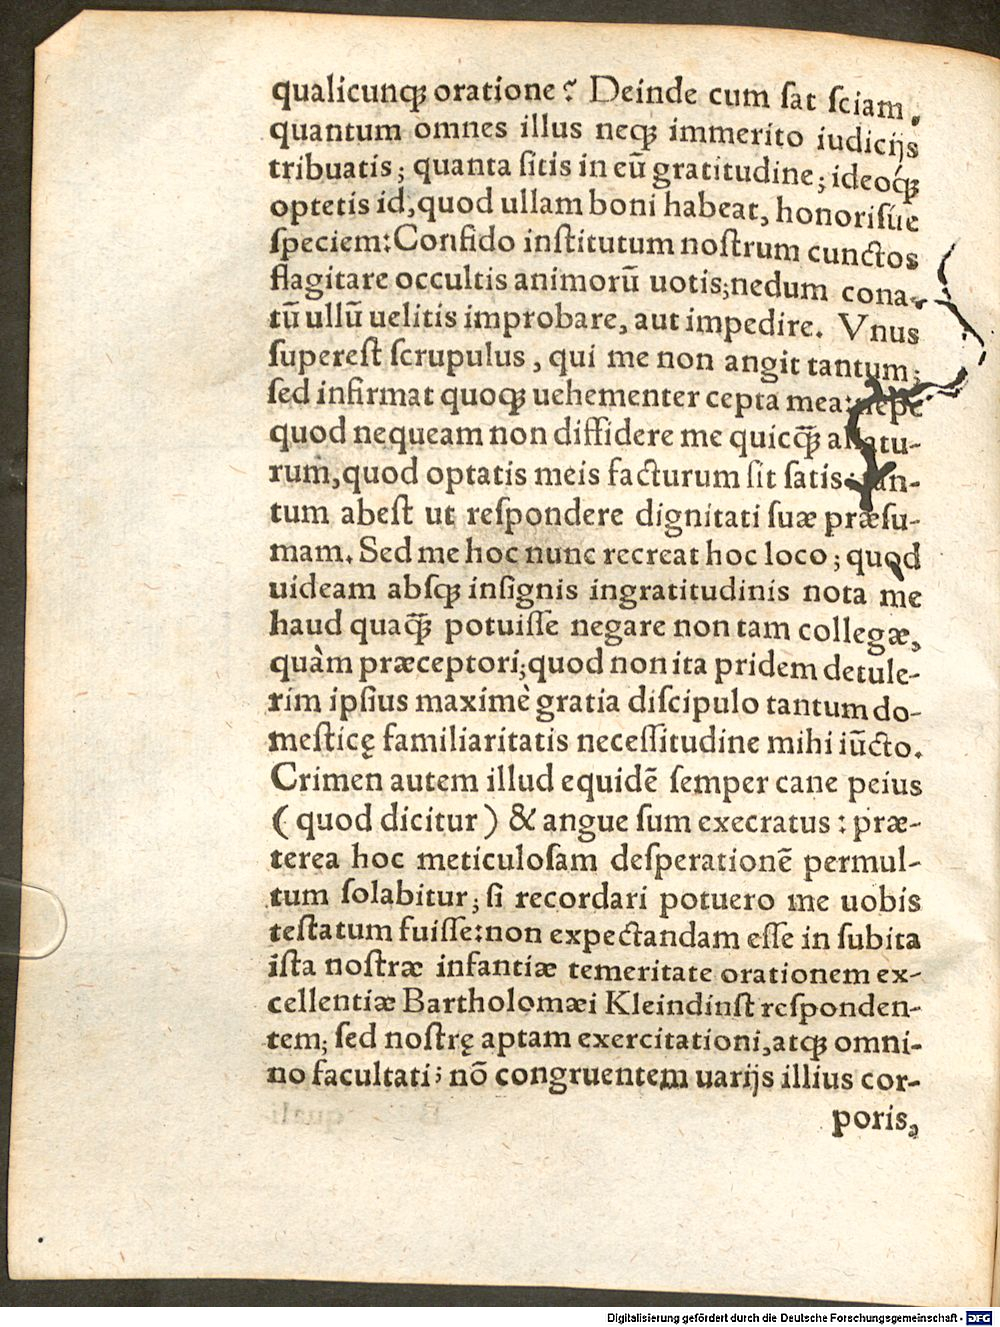 qualicunqꝫ oratione? Deinde cum ſat ſciam,
quantum omnes illus neqꝫ immerito iudicijs
tribuatis; quanta ſitis in eū gratitudine; ideoq́ꝫ
optetis id, quod ullam boni habeat, honoriſúe
ſpeciem: Confido inſtitutum noſtrum cunctos
flagitare occultis animorū uotis; nedum cona-
tū ullū uelitis improbare, aut impedire. Vnus
ſupereſt ſcrupulus, qui me non angit tantum;
ſed infirmat quoqꝫ uehementer cepta mea: nepe
quod nequeam non diffidere me quicq̄ꝫ allatu-
rum, quod optatis meis facturum ſit ſatis: tan-
tum abeſt ut reſpondere dignitati ſuæ præſu-
mam. Sed me hoc nunc recreat hoc loco; quod
uideam abſqꝫ inſignis ingratitudinis nota me
haud quaq̄ꝫ potuiſſe negare non tam collegæ,
quàm præceptori; quod non ita pridem detule-
rim ipſius maximè gratia diſcipulo tantum do-
meſticę familiaritatis neceſſitudine mihi iūcto.
Crimen autem illud equidē ſemper cane peius
(quod dicitur) & angue ſum execratus: præ-
terea hoc meticuloſam deſperationē permul-
tum ſolabitur; ſi recordari potuero me uobis
teſtatum fuiſſe: non expectandam eſſe in ſubita
iſta noſtræ infantiæ temeritate orationem ex-
cellentiæ Bartholomæi Kleindinſt reſponden-
tem; ſed noſtrę aptam exercitationi, atqꝫ omni-
no facultati; nō congruentem uarijs illius cor-
poris,
Digitalisierung gefördert durch die Deutsche Forschungsgemeinschaft - DFG